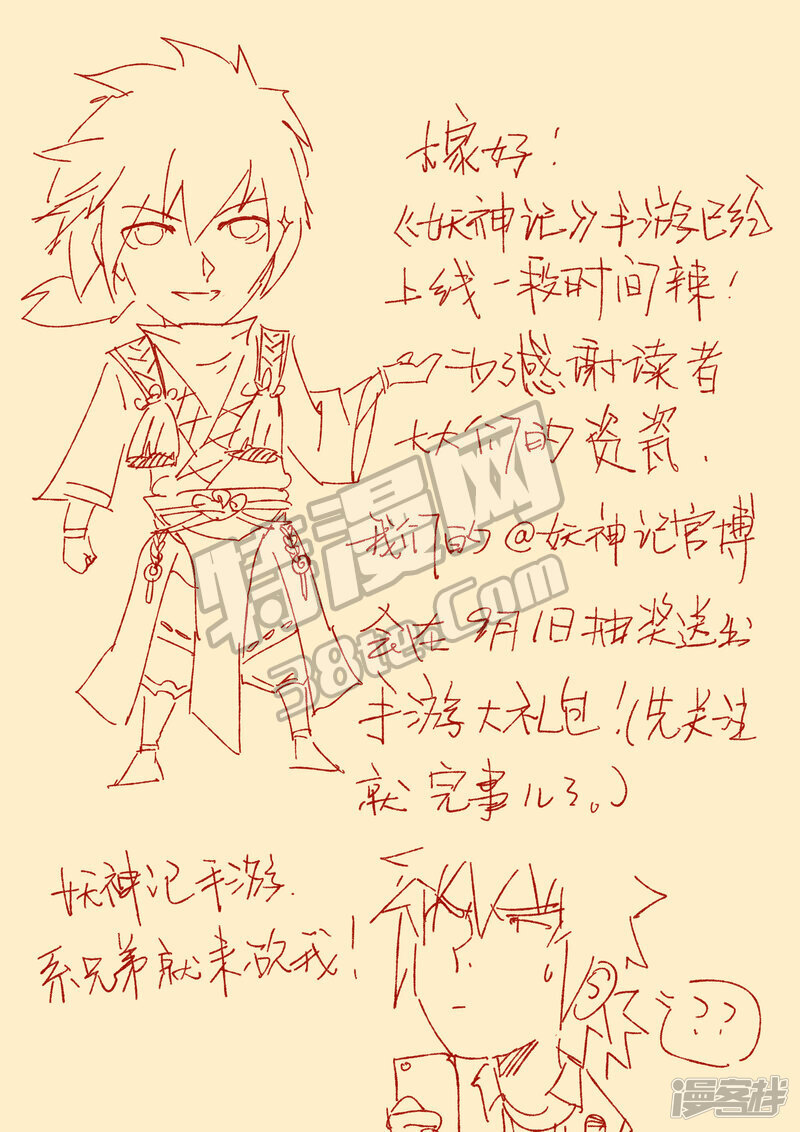 大家好！
《妖神记》手游已经
上线一段时间辣！
为了感谢读者
大大们的资瓷.
我们的@妖神记官博
会在9月1日抽奖送出
手游大礼包！（先关注
就完事儿了。）
妖神记手游.
系兄弟就来砍我！
??
特漫网
38te.Com
漫客栈